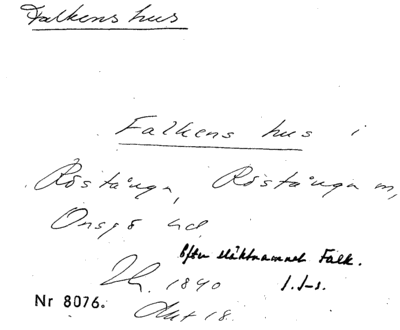 Falkens hus
Falkens hus i
Röstånga, Röstånga sn,
Onsjö hd.
Efter släktnamnet Falk.
1840 J. I-s.
Nr 8076.
Okt 18